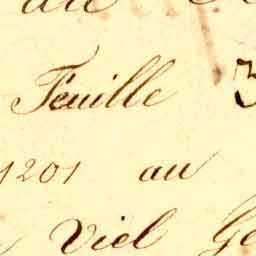 au
Feuille 3
1201 au
Viel Ge